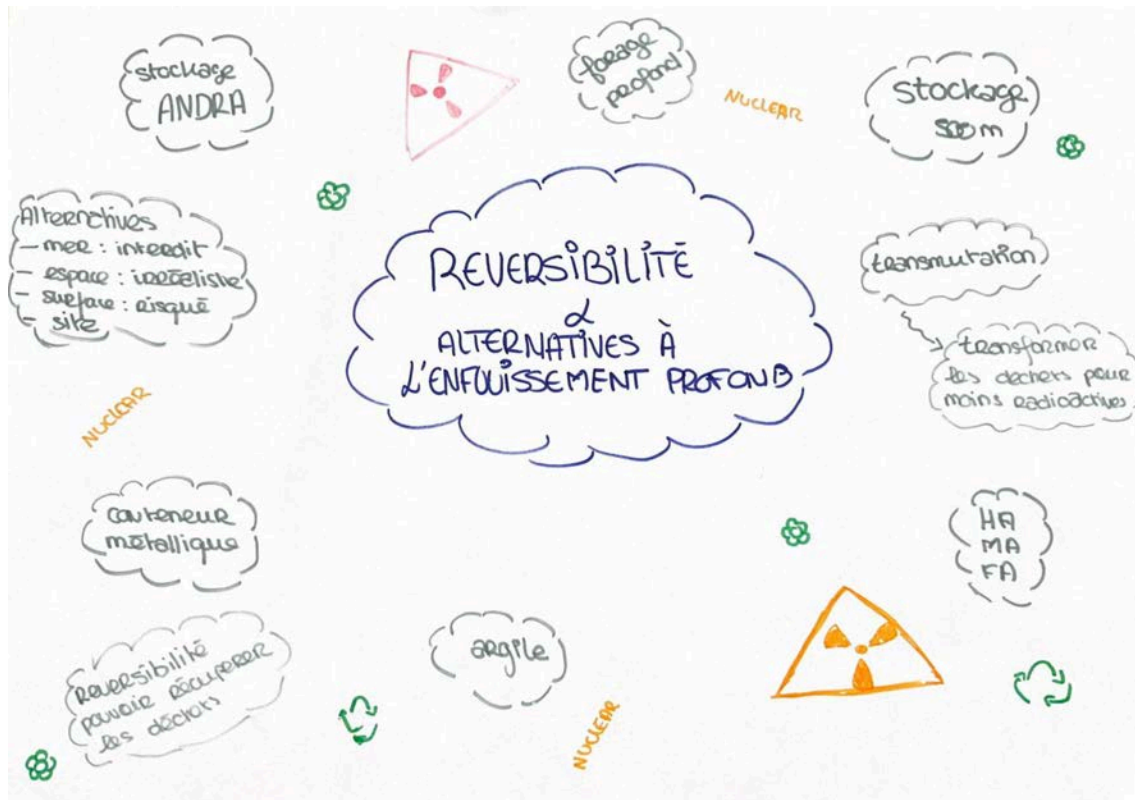 stockage
ANDRA
forage
profond
NUCLEAR
stockage
500m
Alternatives
- mer : interdit
- espace : irréaliste
- surface : risqué
- site
REVERSIBILITÉ
&
ALTERNATIVES À
L'ENFOUISSEMENT PROFOND
transmutation
transformer
les déchets pour
moins radioactives
NUCLEAR
conteneur
métallique
HA
MA
FA
reversibilité
pouvoir récuperer
les déchets
argile
NUCLEAR